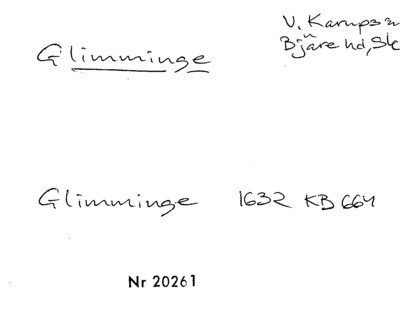 Glimminge
V. Karups sn
Bjäre hd, Sk
Glimminge 1632 KB 664
Nr 20261